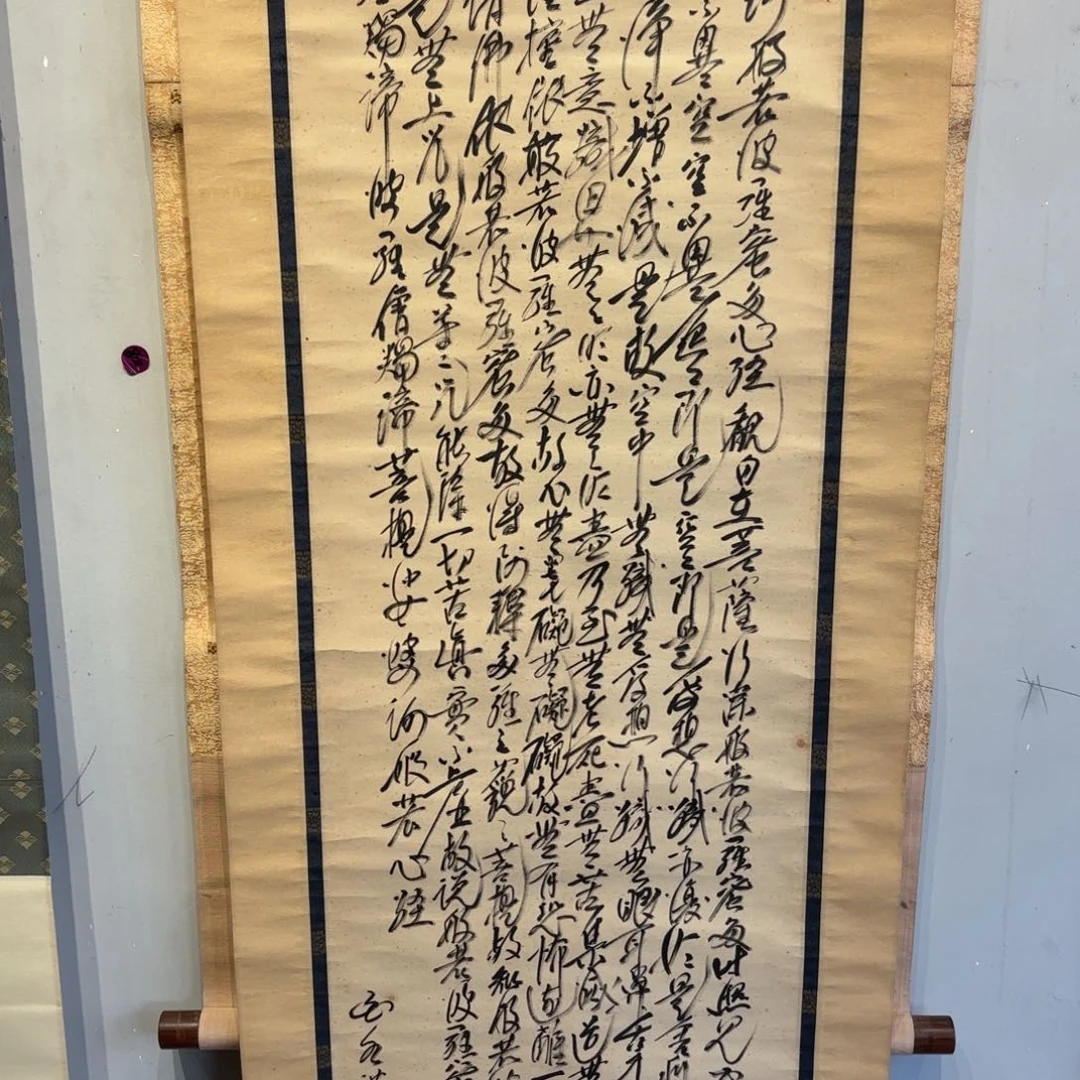 訶般若波羅蜜多心経観自在菩薩行深般若波羅蜜多時照見五
不異空空不異色色即是空空即是色受想行識亦復如是舎利
浄不増不減是故空中無色無受想行識無眼耳鼻舌身
無意識界無々明亦無々明盡乃至無老死盡無苦集滅道無
埵依般若波羅蜜多故心無罣礙無罣礙故無有恐怖遠離一
諸佛依般若波羅蜜多故得阿耨多羅三藐三菩提故知般若
是無上咒是無等々咒能除一切苦真實不虚故説般若波羅蜜
羯諦波羅僧羯諦菩提娑婆訶般若心経